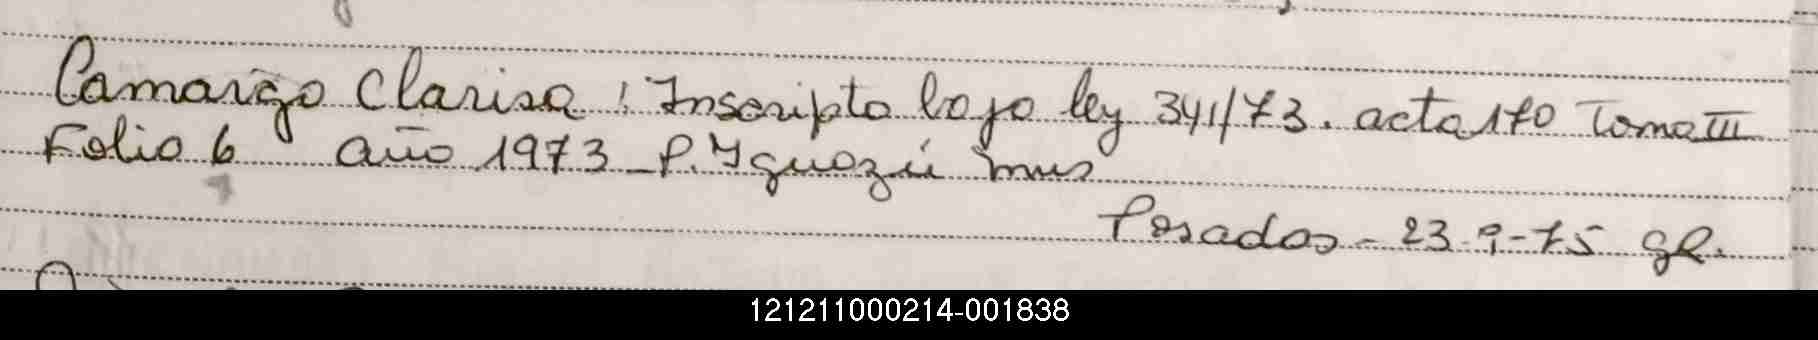 Camargo Clarisa: Inscripto bajo ley 341/73. acta 170 Tomo III
Folio 6 año 1973 - P. Yguazú mns
Posadas - 23-9-75 gR.
121211000214-001838